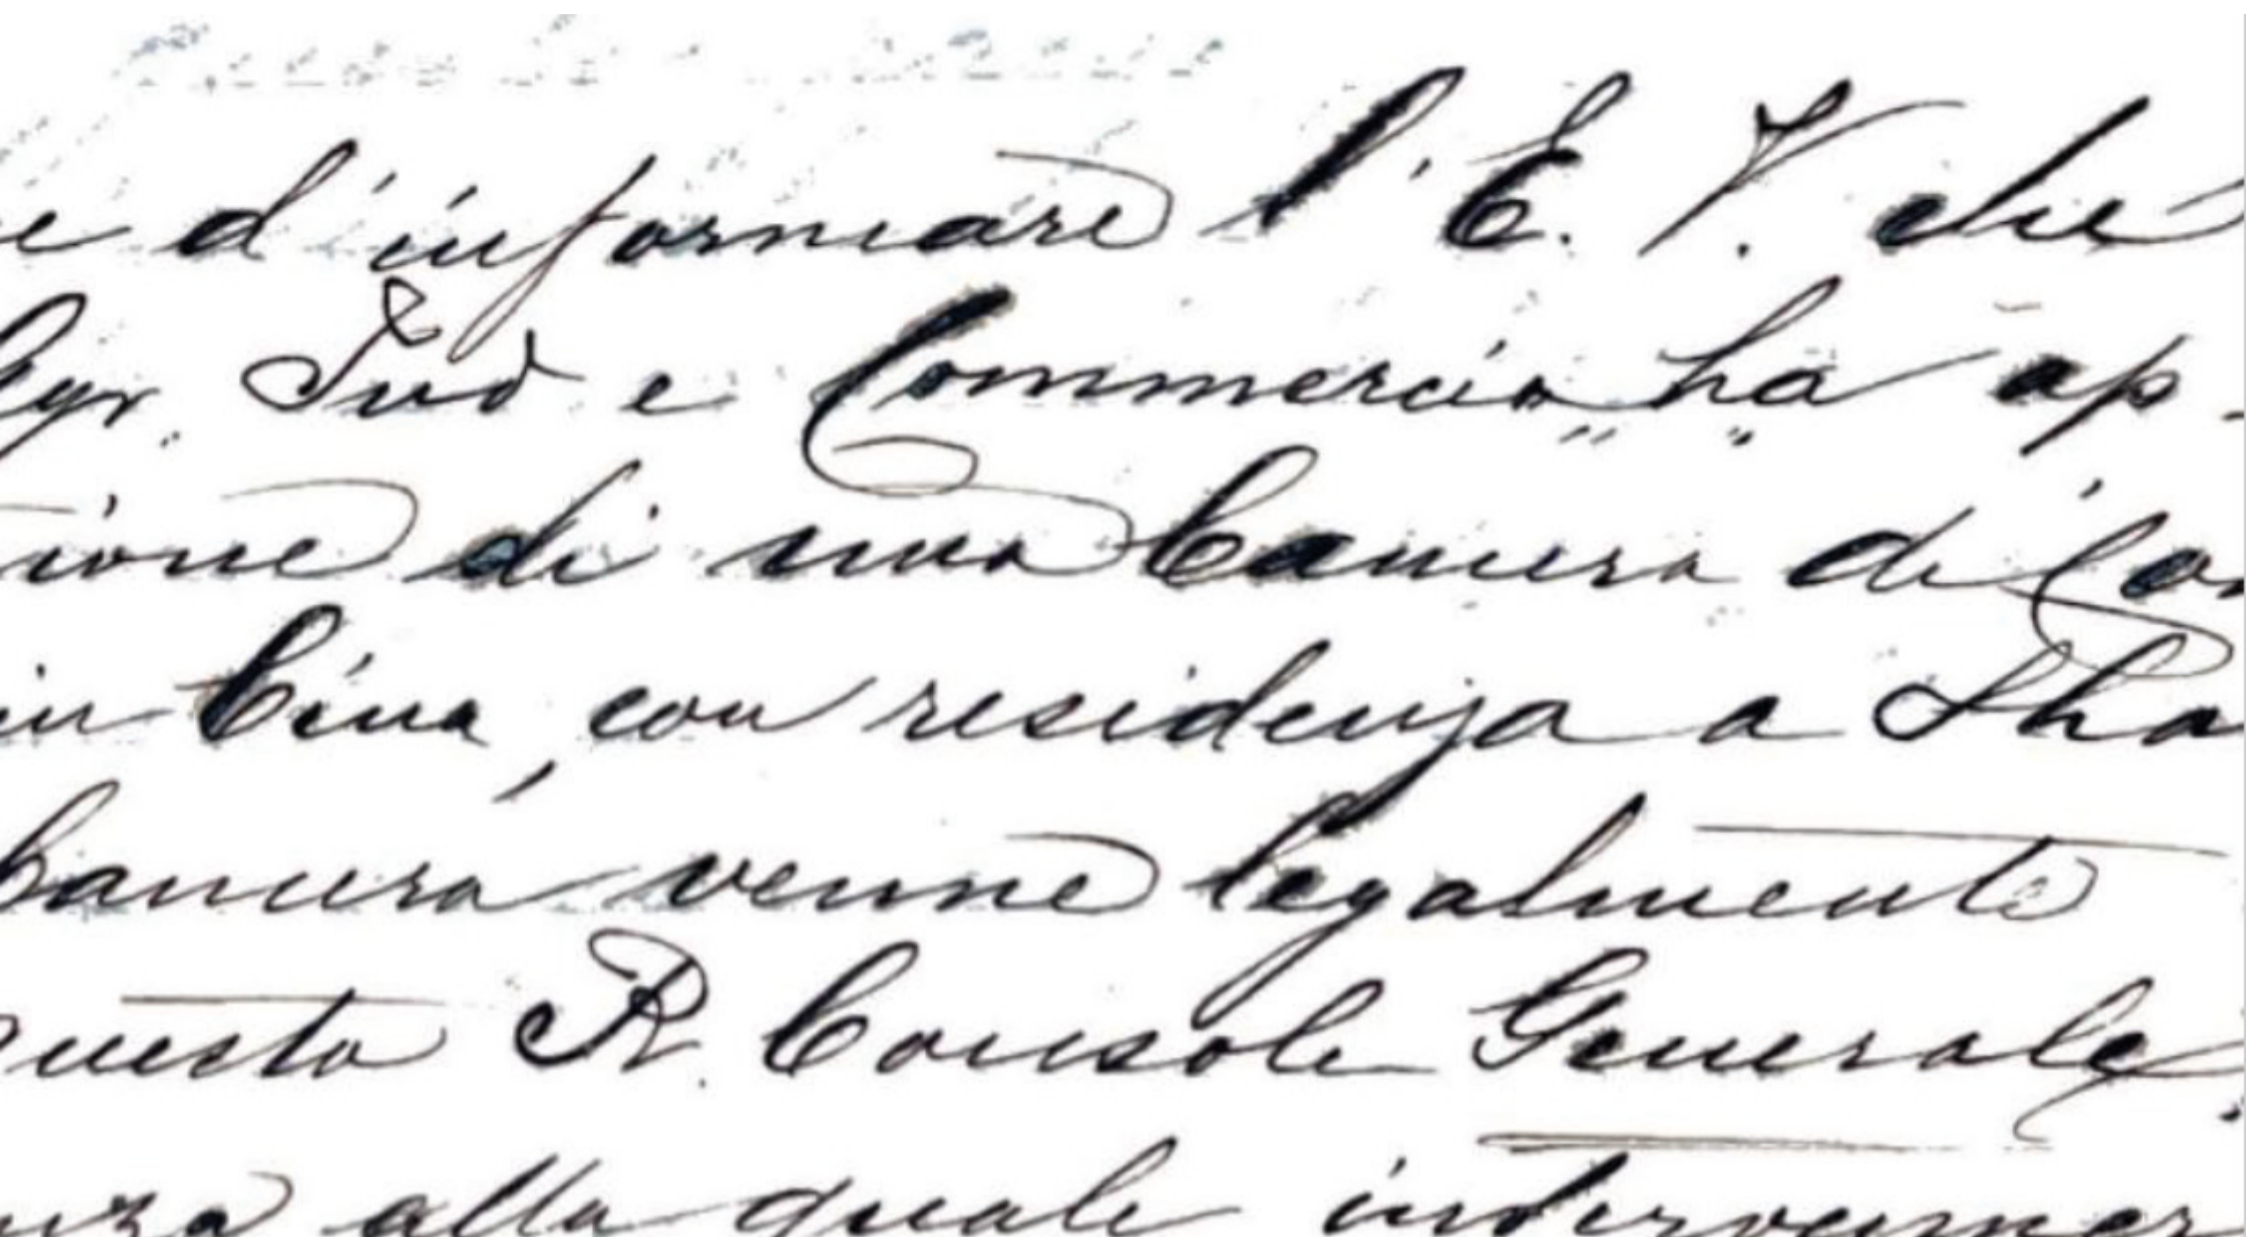 e d'informare l'E. V. che
Agr. Ind e Commercio ha ap-
ione di una Camera di Com
in Cina, con residenza a Sha
Camera venne legalmente
questo R. Console Generale,
nza alla quale intervenner